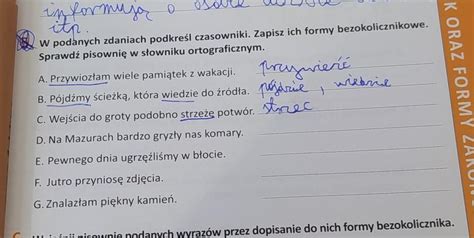 informują o
itp.
W podanych zdaniach podkreśl czasowniki. Zapisz ich formy bezokolicznikowe.
Sprawdź pisownię w słowniku ortograficznym.
A. Przywiozłam wiele pamiątek z wakacji. przywieść
B. Pójdźmy ścieżką, która wiedzie do źródła. pójdzie,
C. Wejścia do groty podobno strzeże potwór. strzec
D. Na Mazurach bardzo gryzły nas komary.
E. Pewnego dnia ugrzęźliśmy w błocie.
F. Jutro przyniosę zdjęcia.
G. Znalazłam piękny kamień.
pisownię podanych wyrazów przez dopisanie do nich formy bezokolicznika.
K ORAZ FORMY ZAKOŃ